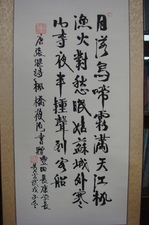 月落烏啼霜滿天江楓
漁火對愁眠姑蘇城外寒
山寺夜半鐘聲到客船
唐張繼詩楓橋夜泊書贈豐田長康